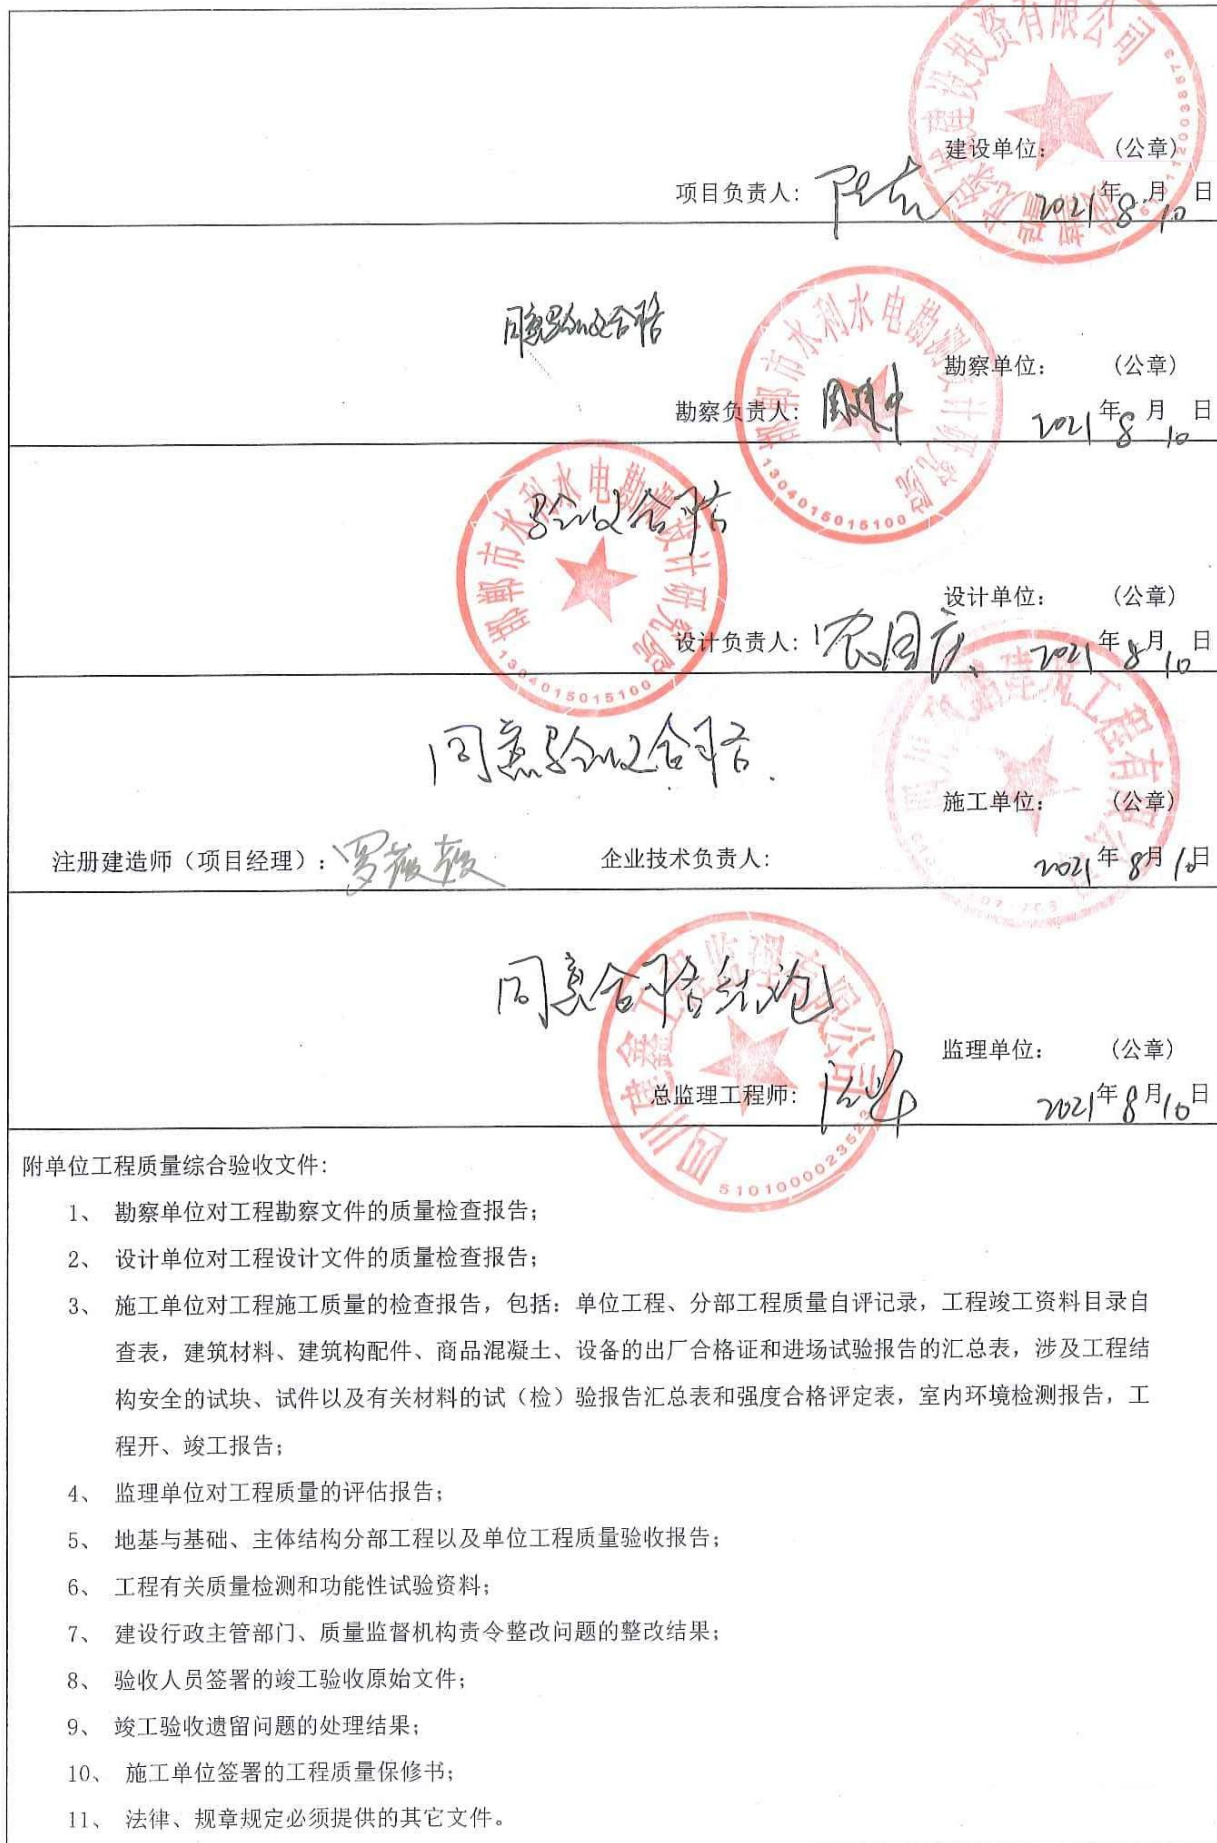 建设投资有限公司
建设单位: (公章)
项目负责人: 2021年8月10日
同意验收合格
邯郸市水利水电勘测设计研究院
勘察单位: (公章)
勘察负责人: 周建中 2021年8月10日
1304015015100
验收合格
邯郸市水利水电勘测设计研究院
设计单位: (公章)
设计负责人: 农国庆 2021年8月10日
1304015015100
同意验收合格.
建筑工程有限公司
施工单位: (公章)
注册建造师（项目经理）: 罗薇薇 企业技术负责人: 2021年8月10日
同意合格结论
四川建鑫工程监理有限公司
监理单位: (公章)
总监理工程师: 2021年8月10日
5101000023523
附单位工程质量综合验收文件:
1、 勘察单位对工程勘察文件的质量检查报告;
2、 设计单位对工程设计文件的质量检查报告;
3、 施工单位对工程施工质量的检查报告，包括: 单位工程、分部工程质量自评记录，工程竣工资料目录自
查表，建筑材料、建筑构配件、商品混凝土、设备的出厂合格证和进场试验报告的汇总表，涉及工程结
构安全的试块、试件以及有关材料的试（检）验报告汇总表和强度合格评定表，室内环境检测报告，工
程开、竣工报告;
4、 监理单位对工程质量的评估报告;
5、 地基与基础、主体结构分部工程以及单位工程质量验收报告;
6、 工程有关质量检测和功能性试验资料;
7、 建设行政主管部门、质量监督机构责令整改问题的整改结果;
8、 验收人员签署的竣工验收原始文件;
9、 竣工验收遗留问题的处理结果;
10、 施工单位签署的工程质量保修书;
11、 法律、规章规定必须提供的其它文件。